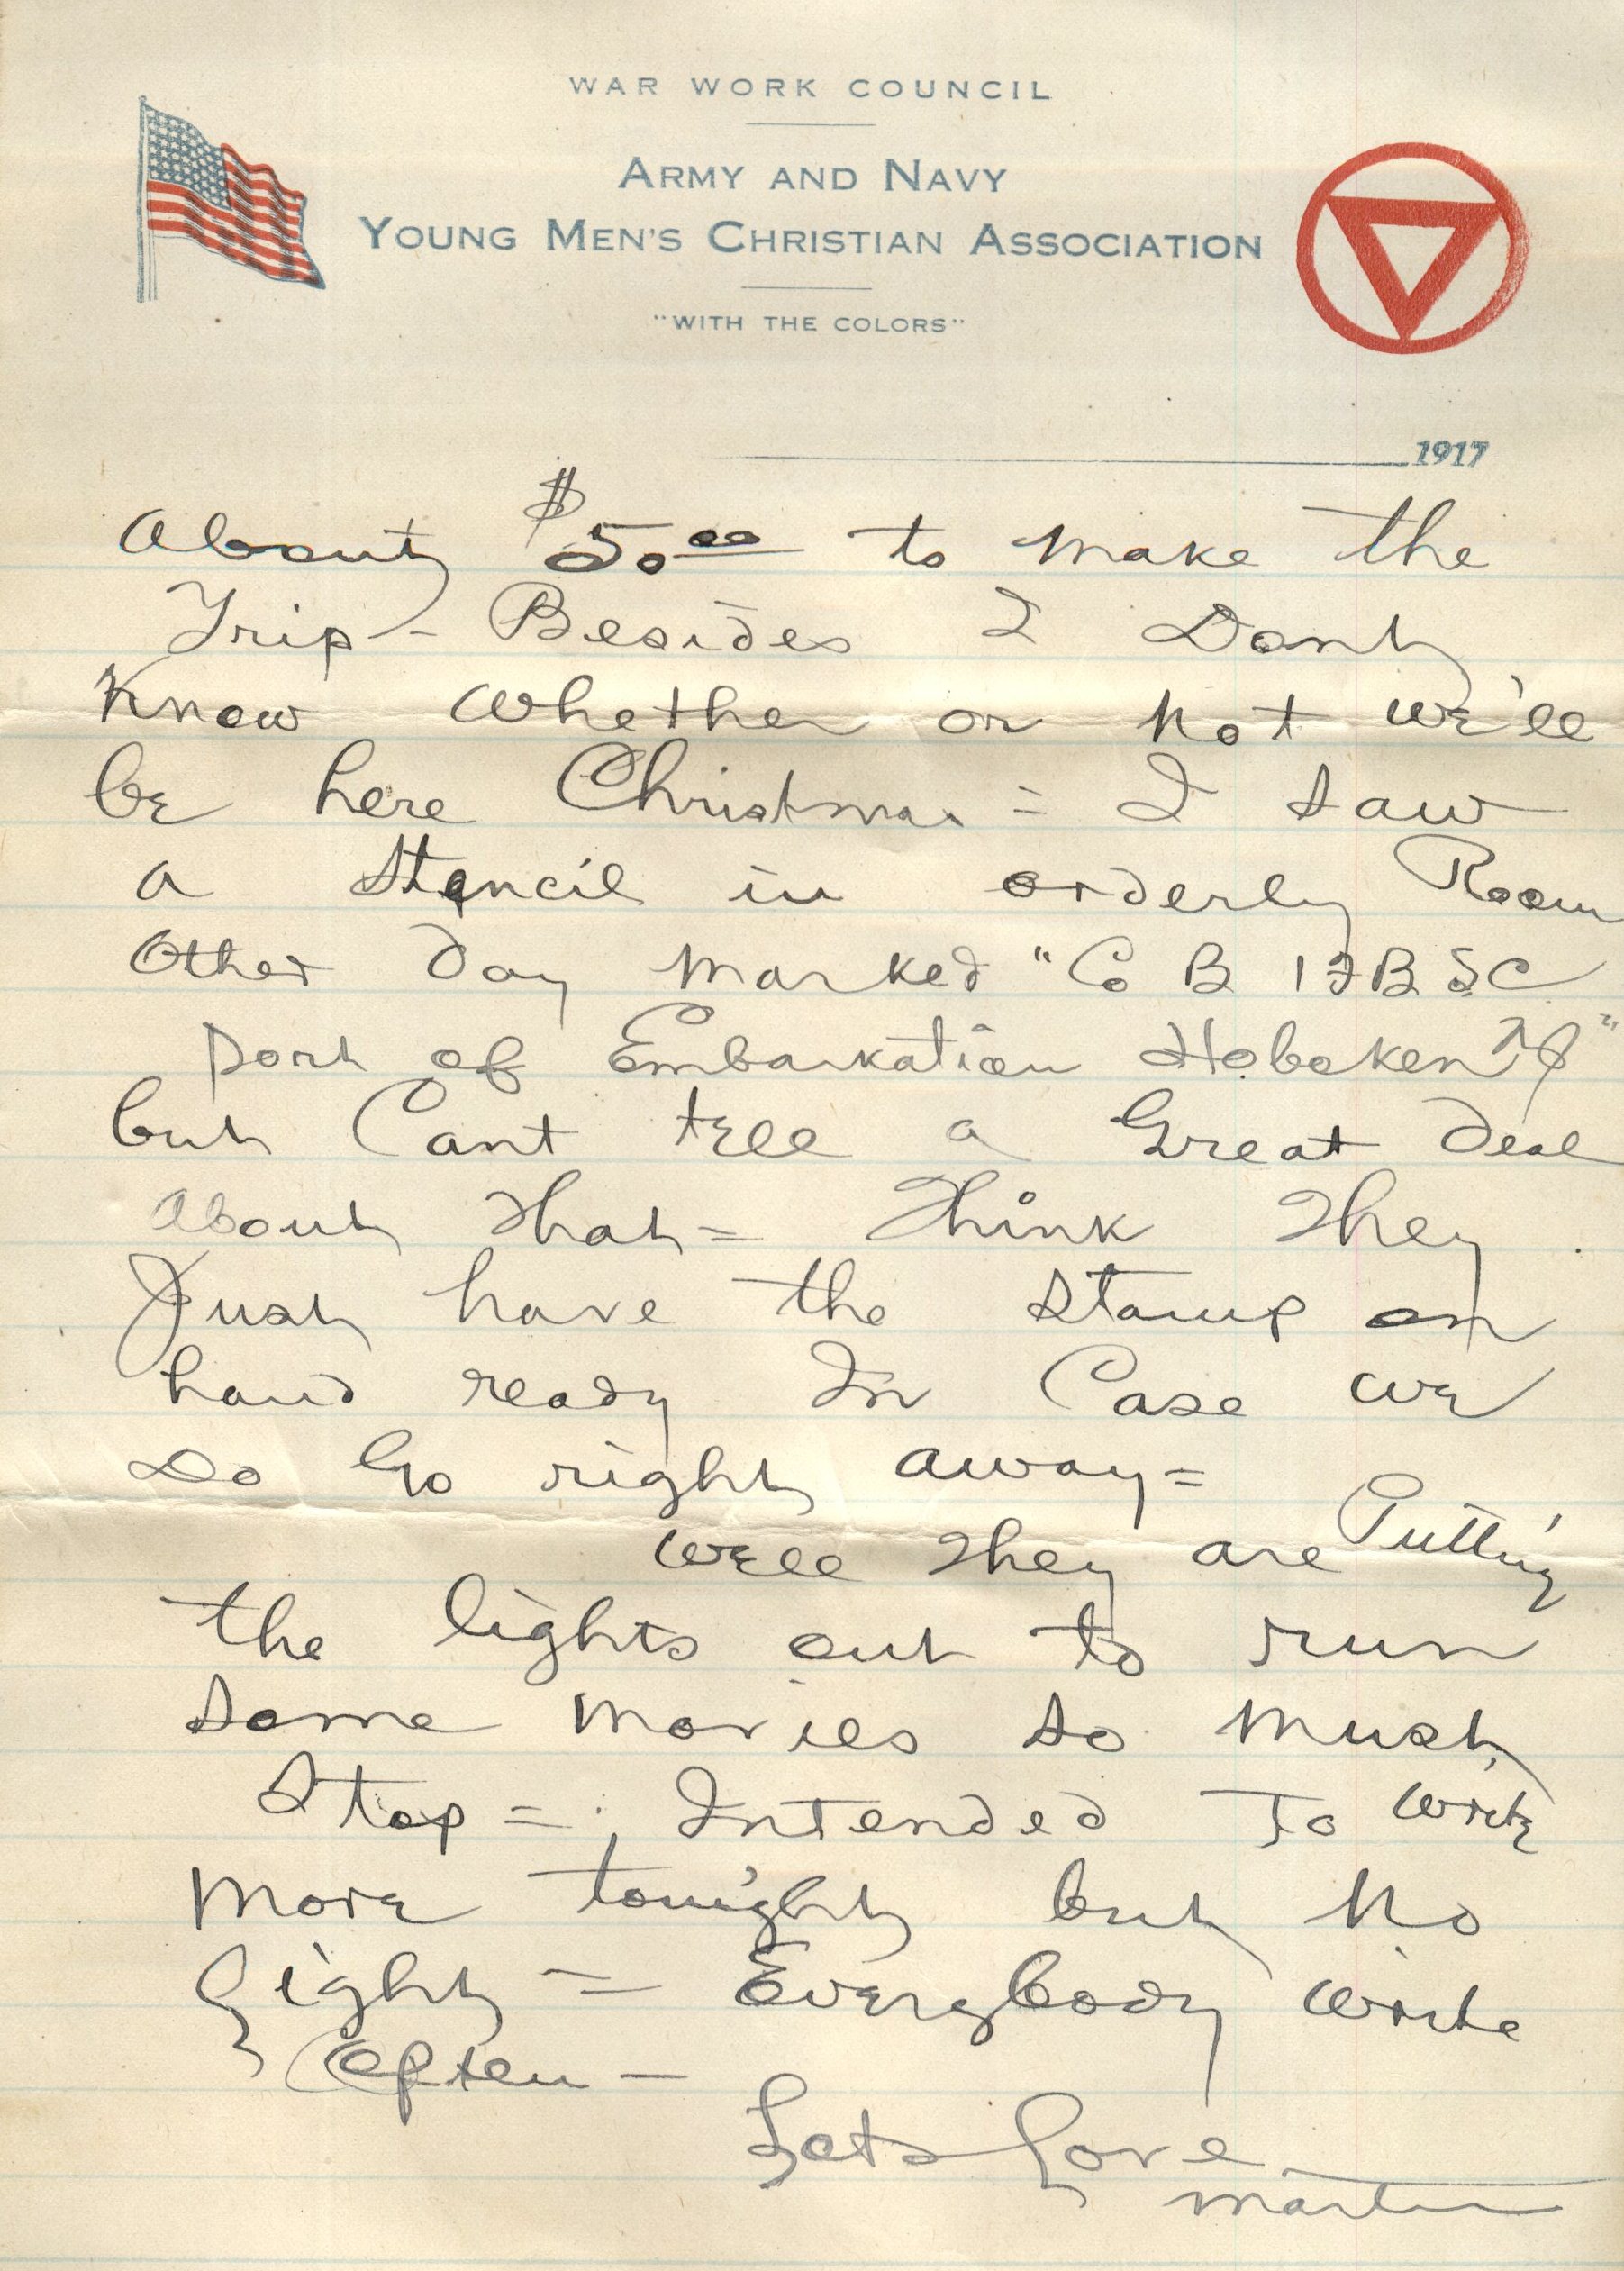 WAR WORK COUNCIL
ARMY AND NAVY
YOUNG MEN'S CHRISTIAN ASSOCIATION
"WITH THE COLORS"
1917
About $50.00 to make the
Trip - Besides I Dont
Know whether or not we'll
be here Christmas = I saw
a Stencil in orderly Room
other day marked "Co B 1FBSC
port of Embarkation Hoboken NJ"
but Cant tell a Great deal
about that = Think They
Just have the stamp on
hand ready In Case we
Do Go right away =
well they are Putting
the lights out to run
some movies so must
Stop = Intended To write
more tonight but No
Light = Everybody write
Often -
Lots Love
Martin